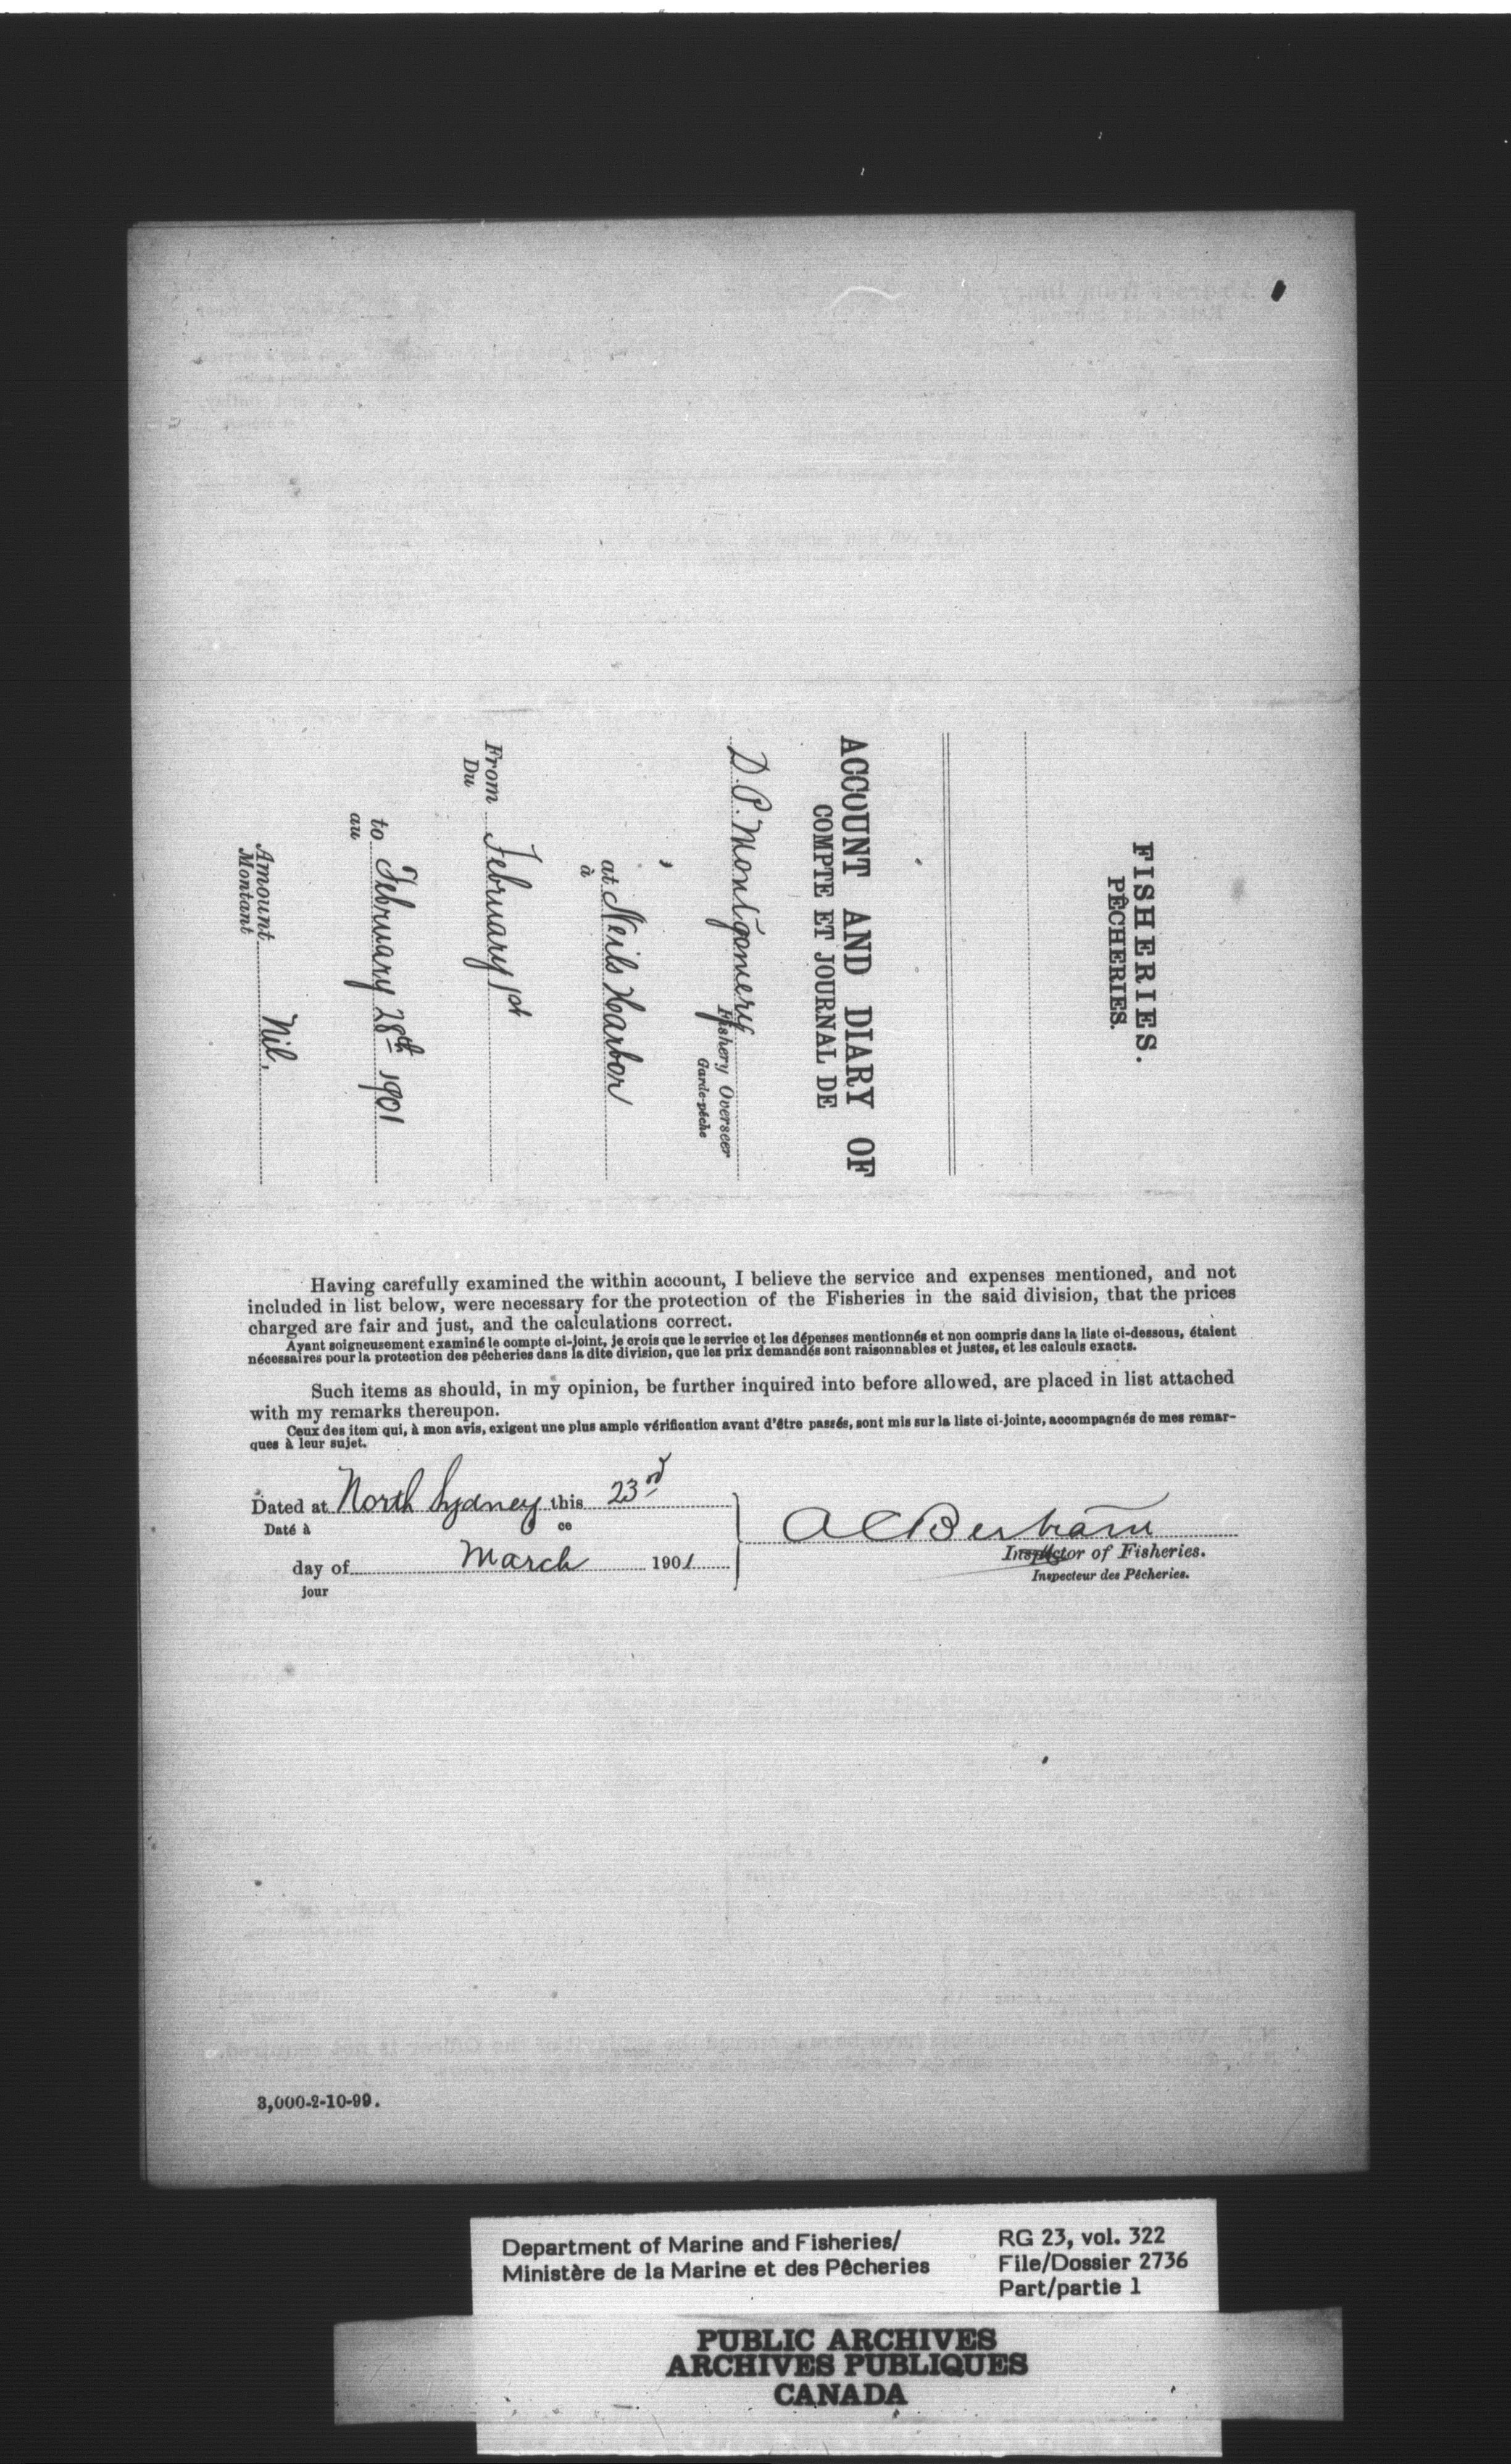 FISHERIES.
PÊCHERIES.
ACCOUNT AND DIARY OF
COMPTE ET JOURNAL DE
D. P. Montgomery
Fishery Overseer
Garde-pêche
at Neils Harbor
à
From February 1st
Du
to February 28th 1901
au
Amount Nil.
Montant
Having carefully examined the within account, I believe the service and expenses mentioned, and not
included in list below, were necessary for the protection of the Fisheries in the said division, that the prices
charged are fair and just, and the calculations correct.
Ayant soigneusement examiné le compte ci-joint, je crois que le service et les dépenses mentionnés et non compris dans la liste ci-dessous, étaient
nécessaires pour la protection des pêcheries dans la dite division, que les prix demandés sont raisonnables et justes, et les calculs exacts.
Such items as should, in my opinion, be further inquired into before allowed, are placed in list attached
with my remarks thereupon.
Ceux des item qui, à mon avis, exigent une plus ample vérification avant d'être passés, sont mis sur la liste ci-jointe, accompagnés de mes remar-
ques à leur sujet.
Dated at North Sydney this 23rd
Daté à ce
day of March 1901
jour
A C Bertram
Inspector of Fisheries.
Inspecteur des Pêcheries.
3,000-2-10-99.
Department of Marine and Fisheries/
Ministère de la Marine et des Pêcheries
RG 23, vol. 322
File/Dossier 2736
Part/partie 1
PUBLIC ARCHIVES
ARCHIVES PUBLIQUES
CANADA